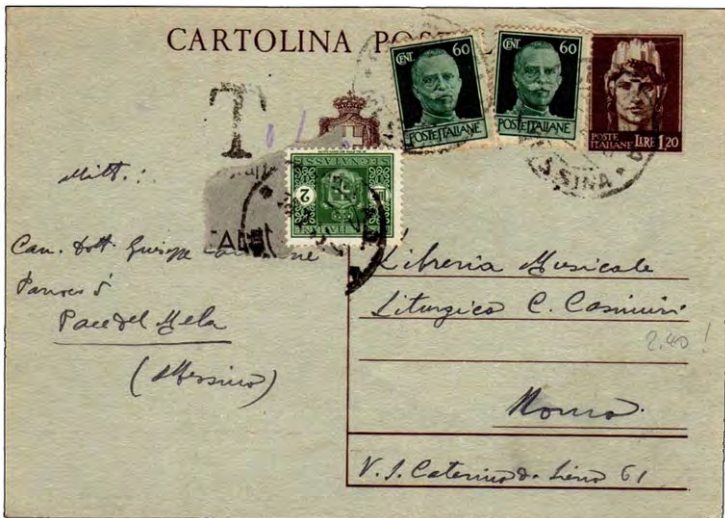 CARTOLINA POST
CENT. 60
POSTE ITALIANE
CENT. 60
POSTE ITALIANE
POSTE ITALIANE LIRE 1,20
T
SEGNATASSE
2
SINA
Mitt.:
Can. Dott. Giuseppe
Pace del Mela
(Messina)
Libreria Musicale
Liturgica C. Casimiri
2.40!
Roma
V. S. Caterina da Siena 61